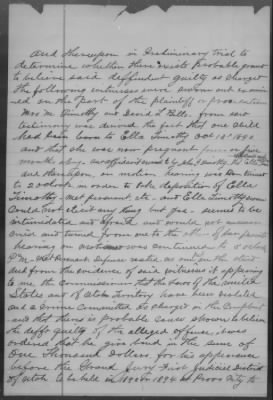 And thereupon in Preliminary trial to
determine whether there exists probable ground
to believe said defendant guilty as charged
the following witnesses were sworn and examin
ed on the part of the plaintiff or prosecution
Mrs M. Timothy and David L. From
testimony was the fact that one child
had been born to Ella Timothy Oct 18" 1892
and that she was now pregnant four or five
months along.
and thereupon, on motion hearing was continued
to 2 oclock in order to take deposition of Ella
Timothy, not present etc. and Ella Timothy
could not elicit any thing but she seemed to be
and would not
and turned from one to the other
hearing on was continued to 5 oclock
P.M. defense rested
and from the evidence of said witnesses it appearing
to me, the commissioner that the laws of the United
States and of Utah Territory have been violated
and a crime committed as charged in the Complaint
and that there is probable cause shown to believe
the deft guilty of the alleged offense, it was
ordered that he give bond in the sum of
One Thousand Dollars, for his appearance
before the Grand Jury First Judicial District
of Utah to be held in 1894 at Provo City to